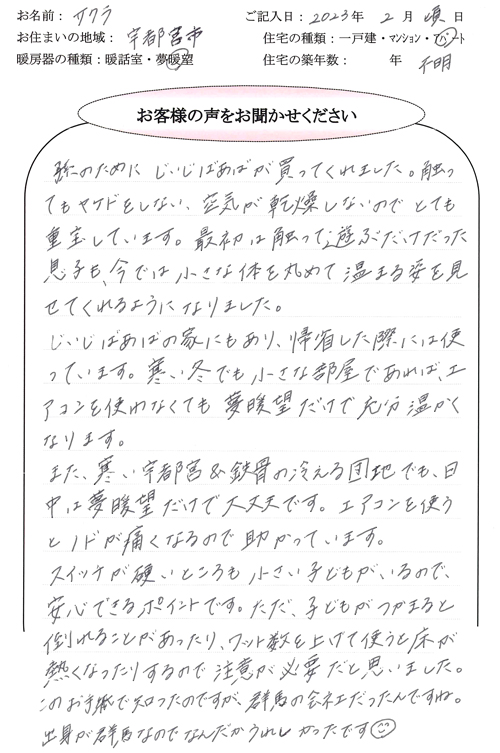 お名前： サクラ ご記入日：2023年 2月 日
お住まいの地域： 宇都宮市 住宅の種類：一戸建・マンション・アパート
暖房器の種類：暖話室・夢暖望 住宅の築年数： 年 不明
お客様の声をお聞かせください
孫のために じいじばあばが買ってくれました。触っ
てもヤケドをしない、空気が乾燥しないのでとても
重宝しています。最初は触って遊ぶだけだった
息子も、今では小さな体を丸めて温まる姿を見
せてくれるようになりました。
じいじばあばの家にもあり、帰省した際には使
っています。寒い冬でも小さな部屋であれば、エ
アコンを使わなくても夢暖望だけで充分温かく
なります。
また、寒い宇都宮&鉄骨の冷える団地でも、日
中は夢暖望だけで大丈夫です。エアコンを使う
とノドが痛くなるので助かっています。
スイッチが硬いところも小さい子どもがいるので、
安心できるポイントです。ただ、子どもがつかまると
倒れることがあったり、ワット数を上げて使うと床が
熱くなったりするので注意が必要だと思いました。
このお手紙で知ったのですが、群馬の会社だったんですね。
出身が群馬なのでなんだかうれしかったです